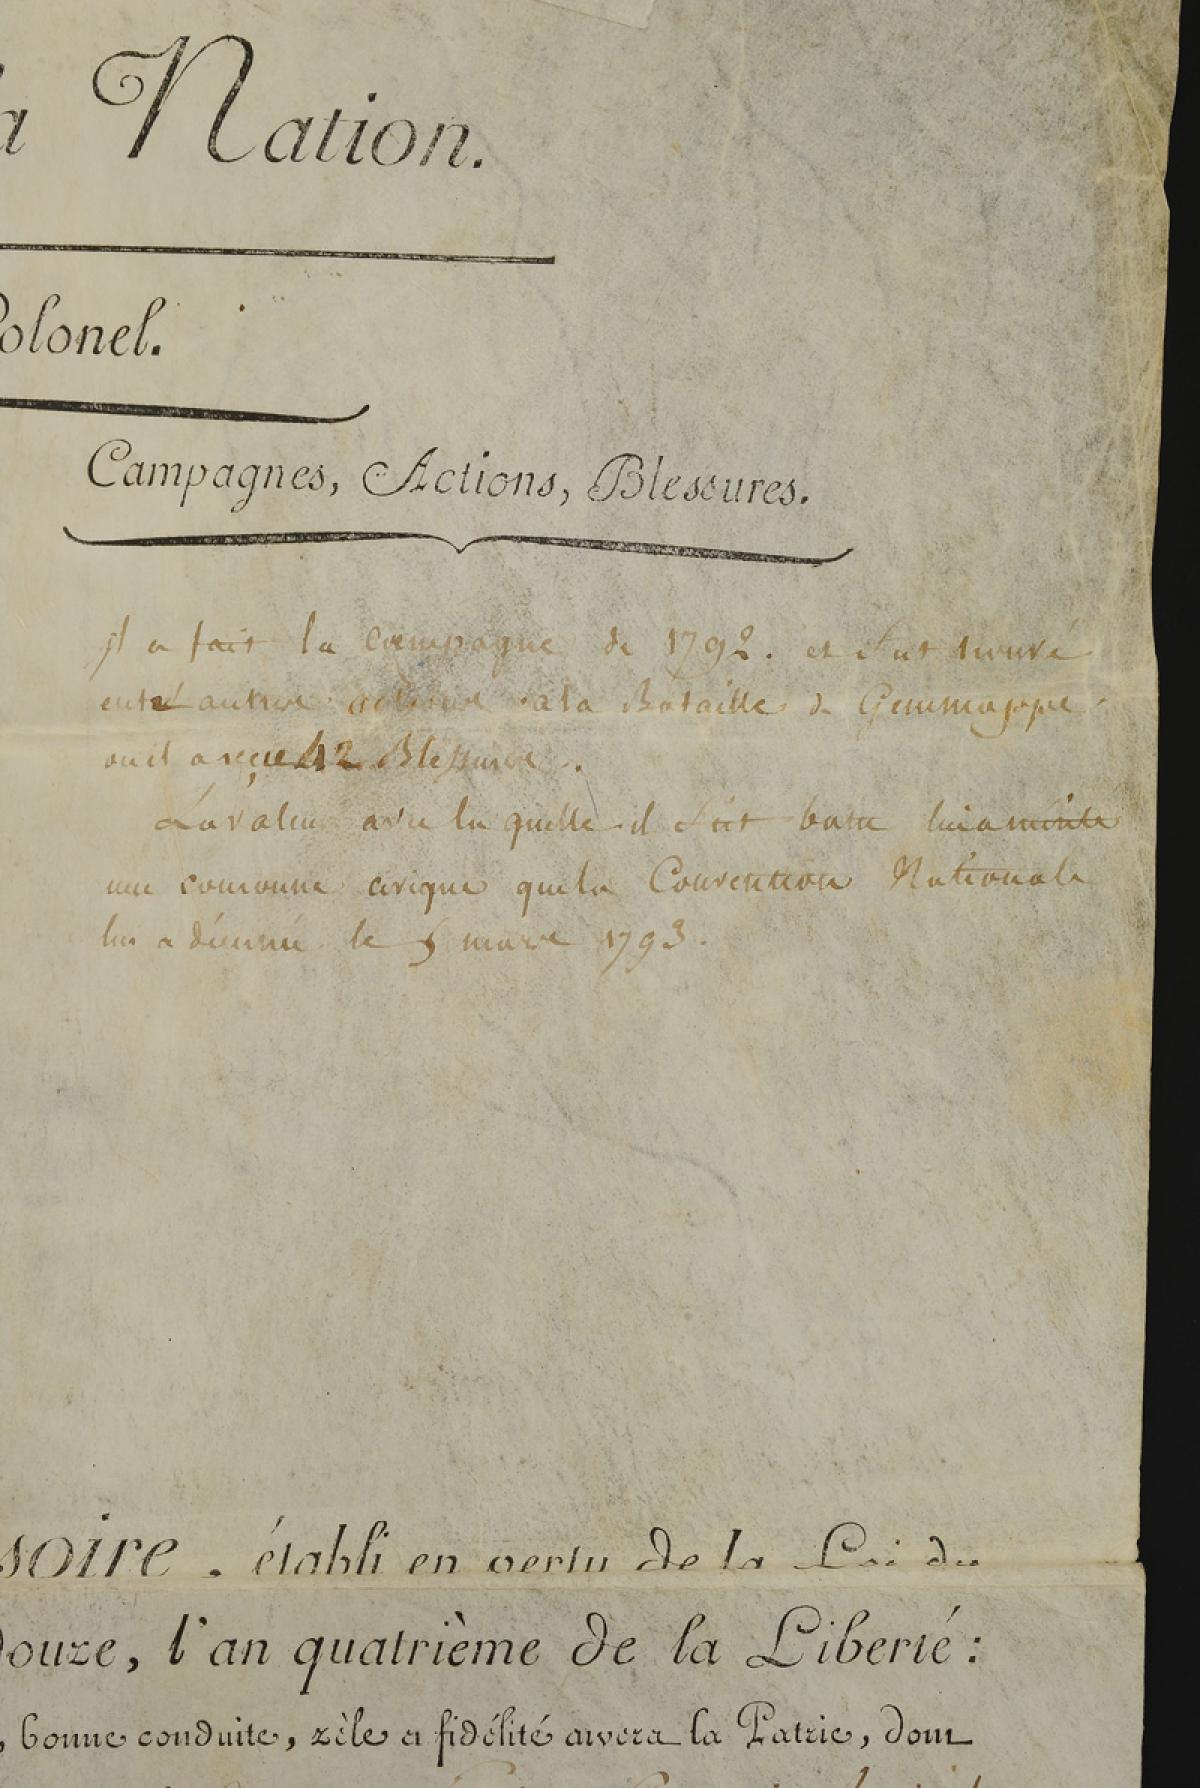 a Nation.
Colonel.
Campagnes, Actions, Blessures.
jl a fait la Campagne de 1792. et s'est trouvé
entr'autres actions a la Bataille de Gemmappe
ou il a reçue 42 Blessures.
La valeur avec la quelle il s'est batu lui a mérité
une couronne civique que la Convention Nationale
lui a décerné le 6 mars 1793.
soire, établi en vertu de la Loi du
douze, l'an quatrième de la Liberté :
, bonne conduite, zèle et fidélité envers la Patrie, dont